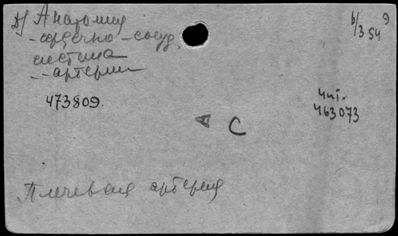 Д) Анатомия
- сердечно-сосуд.
система
-- артерии
473809.
b/354 9
чит.
463073
A
C
Плечевая артерия